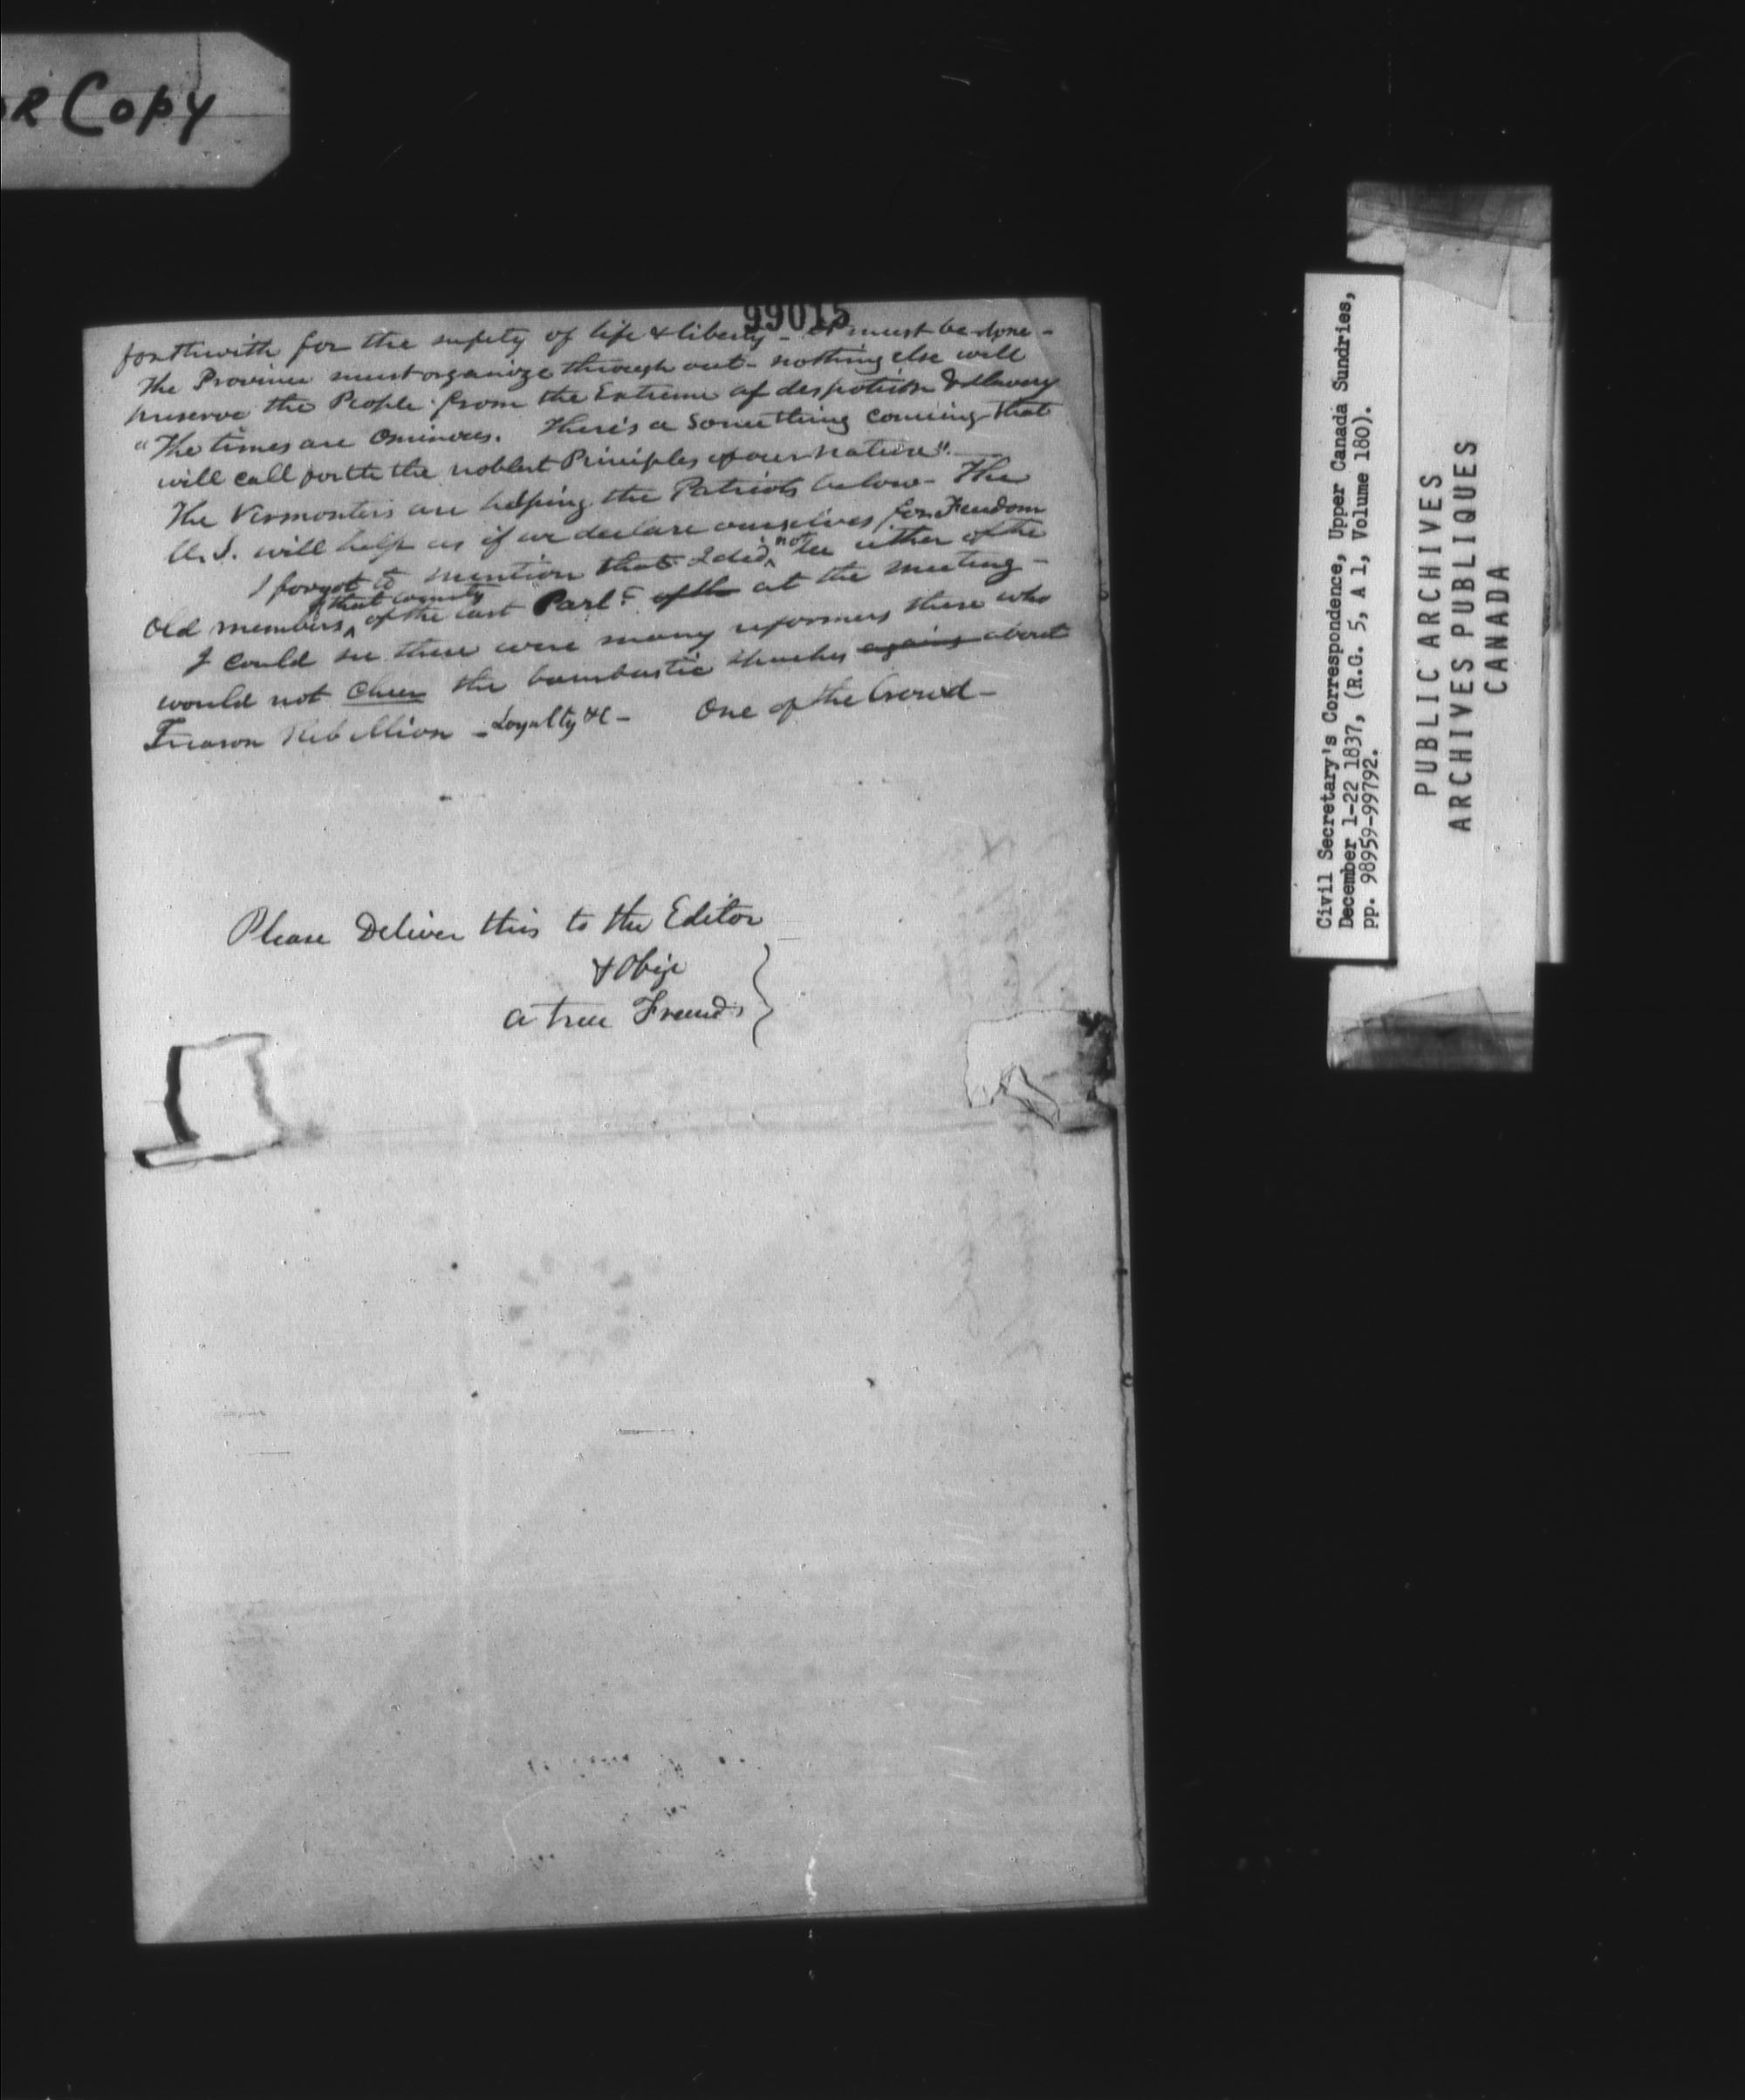 OR Copy
99015
forthwith for the safety of life & liberty - It must be done -
The Province must organize through out - nothing else will
preserve the People from the Extreme of despotism & slavery
"The times are Ominous. There's a Something coming that
will call forth the noblest Principles of our nature". -
The Vermonters are helping the Patriots below - The
U.S. will help us if we declare ourselves for Freedom
I forgot to mention that I did not see either of the
Old members of that County of the last Parlt. of the at the meeting -
I could see there were many reformers there who
would not cheer the bombastic speeches against about
Treason Rebellion - Loyalty &c - One of the Crowd -
Please Deliver this to the Editor
& Oblige
a true Friend
Civil Secretary's Correspondence, Upper Canada Sundries,
December 1-22 1837, (R.G. 5, A 1, Volume 180).
pp. 98959-99792.
PUBLIC ARCHIVES
ARCHIVES PUBLIQUES
CANADA